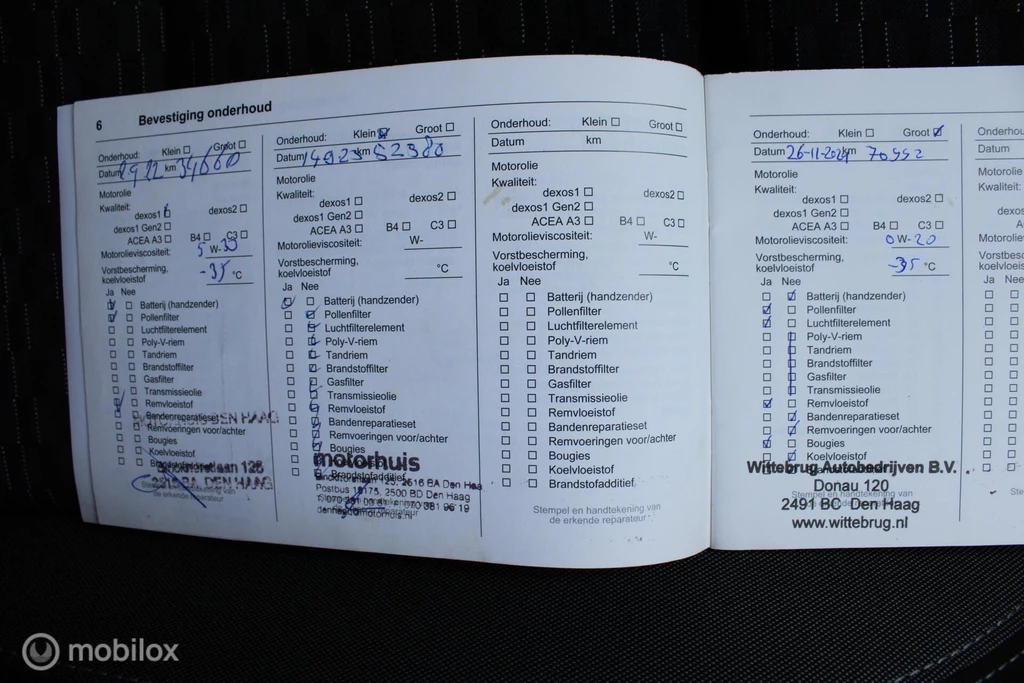 6 Bevestiging onderhoud
Onderhoud: Klein Groot
Datum km 34660
Motorolie
Kwaliteit:
dexos1 dexos2
dexos1 Gen2
ACEA A3 B4 C3
Motorolieviscositeit: 5 W-30
Vorstbescherming,
koelvloeistof -35 °C
Ja Nee
Batterij (handzender)
Pollenfilter
Luchtfilterelement
Poly-V-riem
Tandriem
Brandstoffilter
Gasfilter
Transmissieolie
Remvloeistof
Bandenreparatieset
DEN HAAG
Remvoeringen voor/achter
Bougies
Koelvloeistof
125
DEN HAAG
de erkende reparateur
Onderhoud: Klein Groot
Datum 14923 km 52380
Motorolie
Kwaliteit:
dexos1 dexos2
dexos1 Gen2
ACEA A3 B4 C3
Motorolieviscositeit: W-
Vorstbescherming,
koelvloeistof °C
Ja Nee
Batterij (handzender)
Pollenfilter
Luchtfilterelement
Poly-V-riem
Tandriem
Brandstoffilter
Gasfilter
Transmissieolie
Remvloeistof
Bandenreparatieset
Remvoeringen voor/achter
Bougies
motorhuis
Brandstofadditief
125, 2516 BA Den Haag
Postbus 16175, 2500 BD Den Haag
070 381 96 19
Onderhoud: Klein Groot
Datum km
Motorolie
Kwaliteit:
dexos1 dexos2
dexos1 Gen2
ACEA A3 B4 C3
Motorolieviscositeit: W-
Vorstbescherming,
koelvloeistof °C
Ja Nee
Batterij (handzender)
Pollenfilter
Luchtfilterelement
Poly-V-riem
Tandriem
Brandstoffilter
Gasfilter
Transmissieolie
Remvloeistof
Bandenreparatieset
Remvoeringen voor/achter
Bougies
Koelvloeistof
Brandstofadditief
Stempel en handtekening van
de erkende reparateur
Onderhoud: Klein Groot
Datum 26-11-2024 km 70552
Motorolie
Kwaliteit:
dexos1 dexos2
dexos1 Gen2
ACEA A3 B4 C3
Motorolieviscositeit: 0 W-20
Vorstbescherming,
koelvloeistof -35 °C
Ja Nee
Batterij (handzender)
Pollenfilter
Luchtfilterelement
Poly-V-riem
Tandriem
Brandstoffilter
Gasfilter
Transmissieolie
Remvloeistof
Bandenreparatieset
Remvoeringen voor/achter
Bougies
Koelvloeistof
Wittebrug Autobedrijven B.V.
Donau 120
Stempel en handtekening van
2491 BC Den Haag
www.wittebrug.nl
Datum
Motorolie
Kwaliteit:
Ja Nee
mobilox